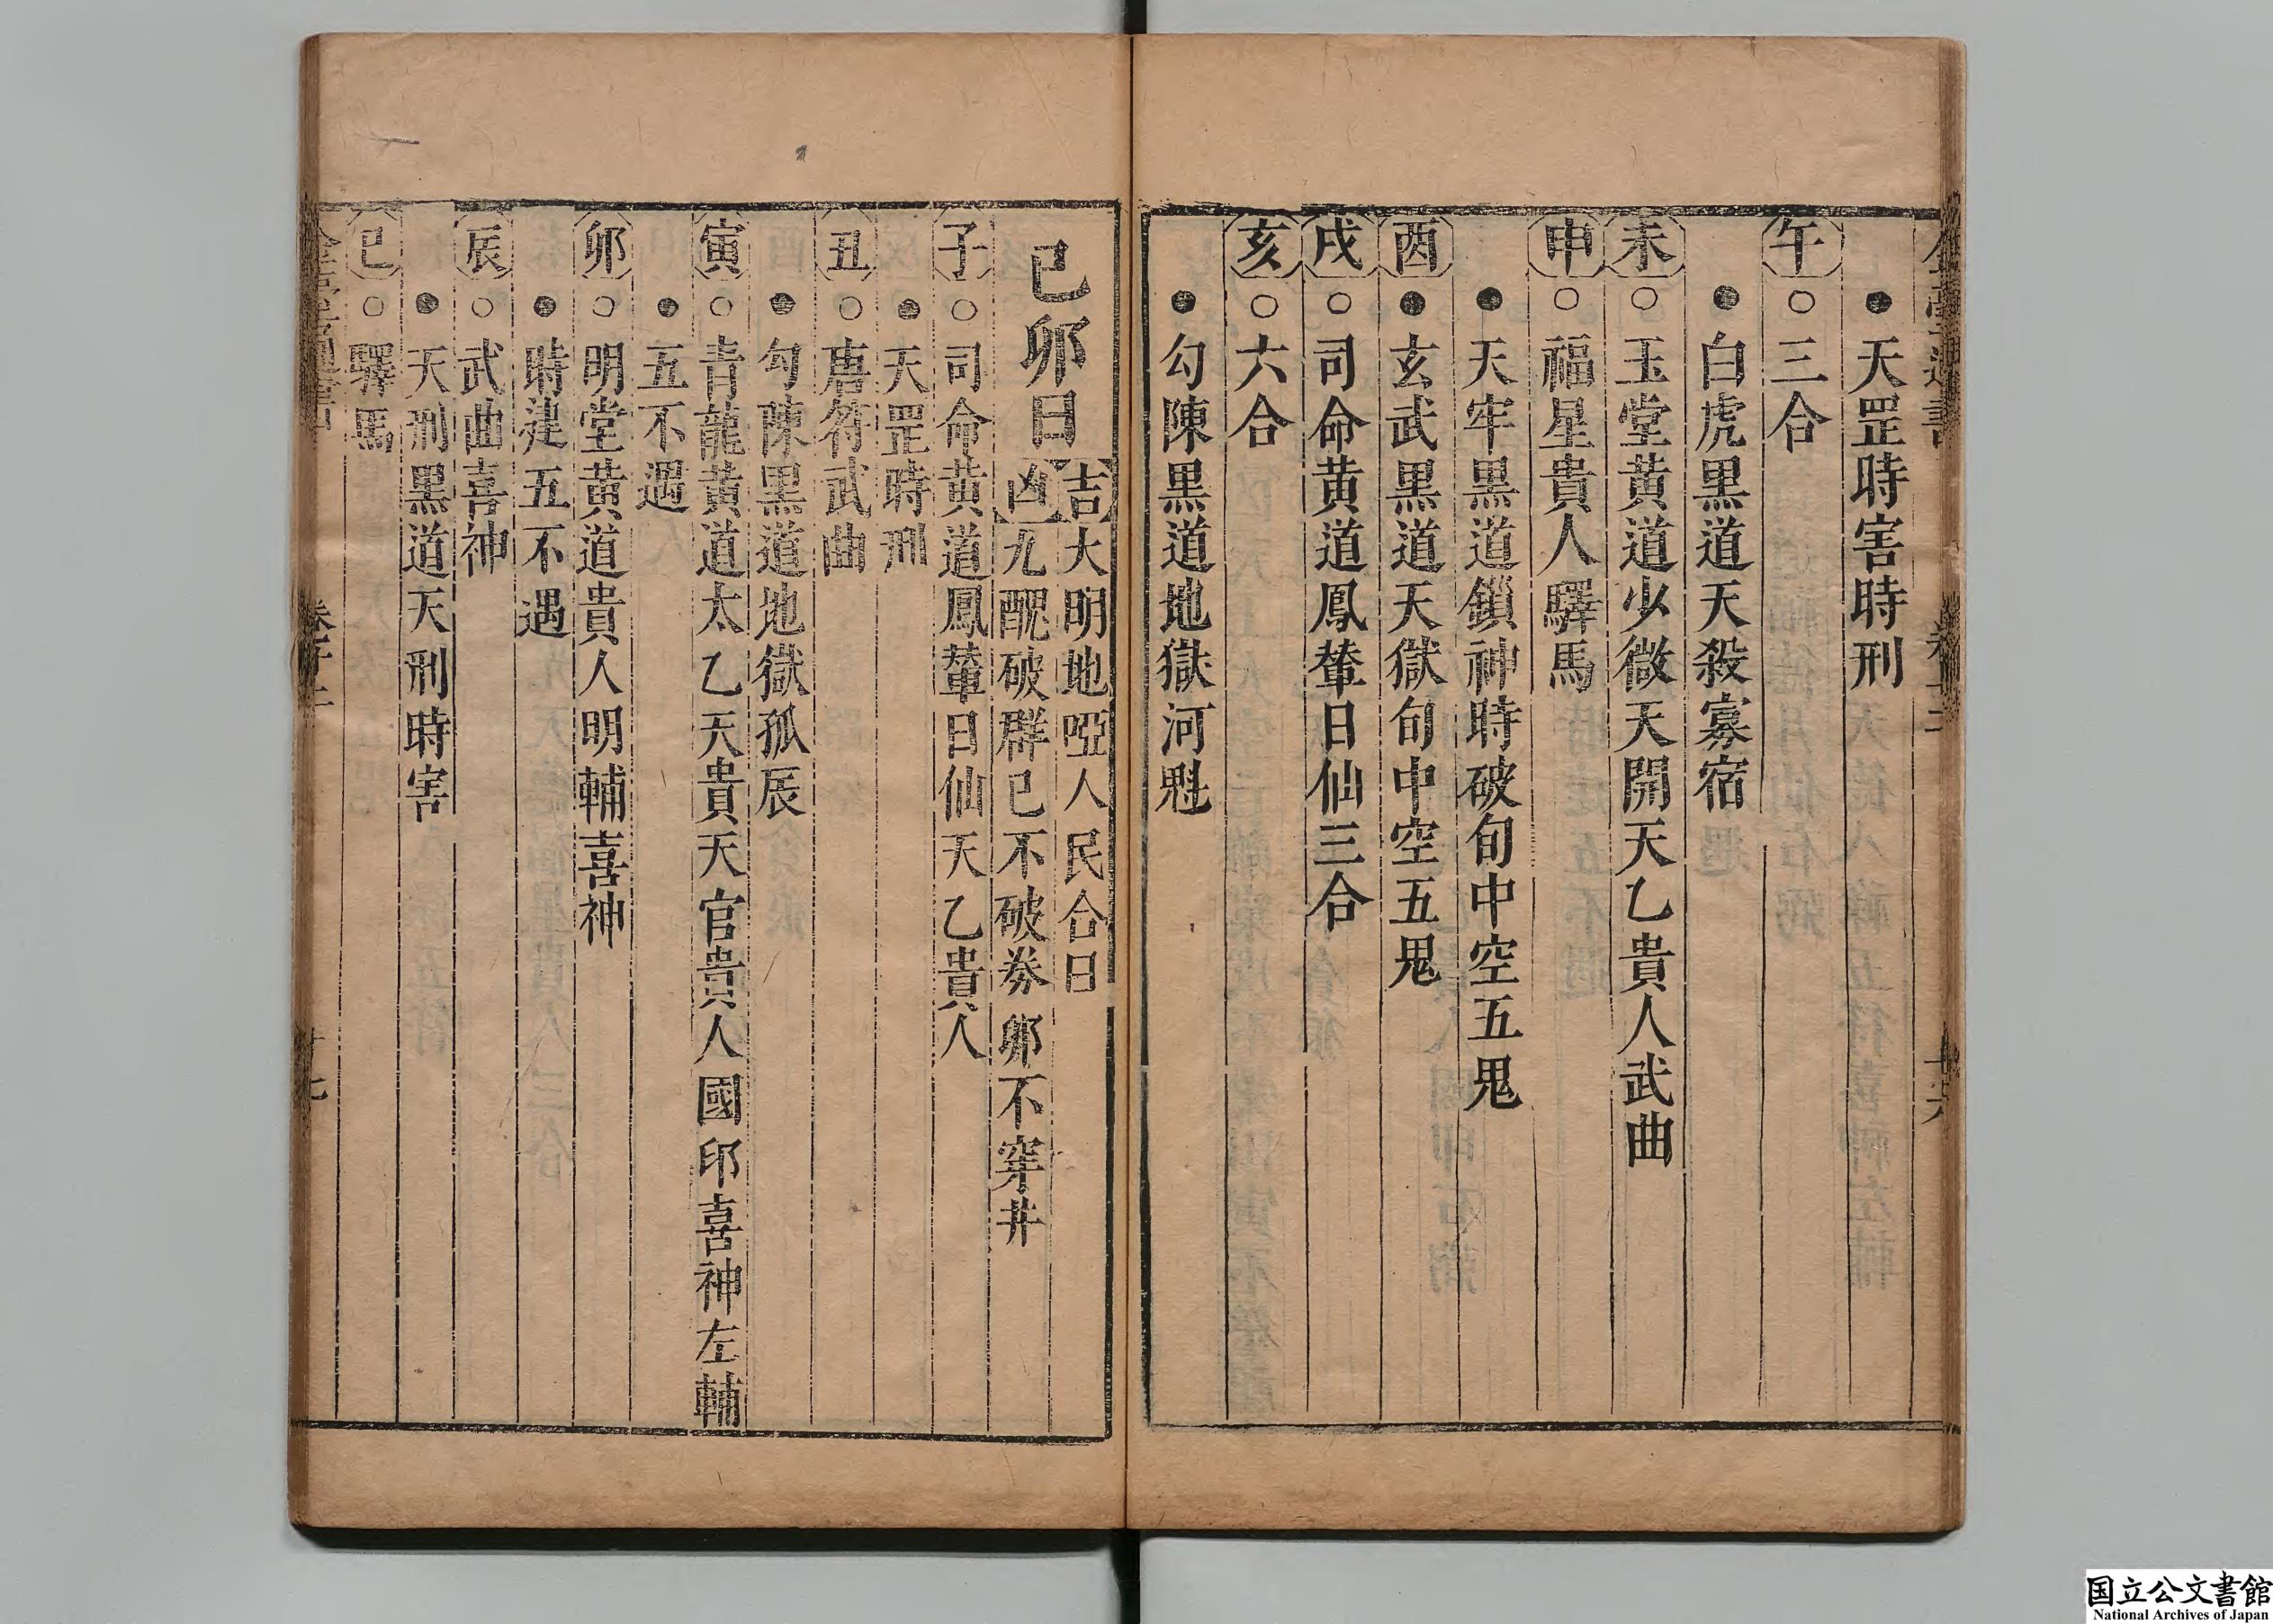 ●天罡時害時刑
午○三合
●白虎黒道天殺寡宿
未○玉堂黄道少微天開天乙貴人武曲
申○福星貴人驛馬
●天牢黒道鎖神時破旬中空五鬼
酉●玄武黒道天獄旬中空五鬼
戌○司命黄道鳳輦日仙三合
亥○六合
●勾陳黒道地獄河魁
己卯日
吉大明地啞人民合日
凶九醜破群己不破券卯不穿井
子○司命黄道鳳輦日仙天乙貴人
●天罡時刑
丑○唐符武曲
●勾陳黒道地獄孤辰
寅○青龍黄道太乙天貴天官貴人國印喜神左輔
●五不遇
卯○明堂黄道貴人明輔喜神
●時建五不遇
辰○武曲喜神
●天刑黒道天刑時害
巳○驛馬
国立公文書館
National Archives of Japan